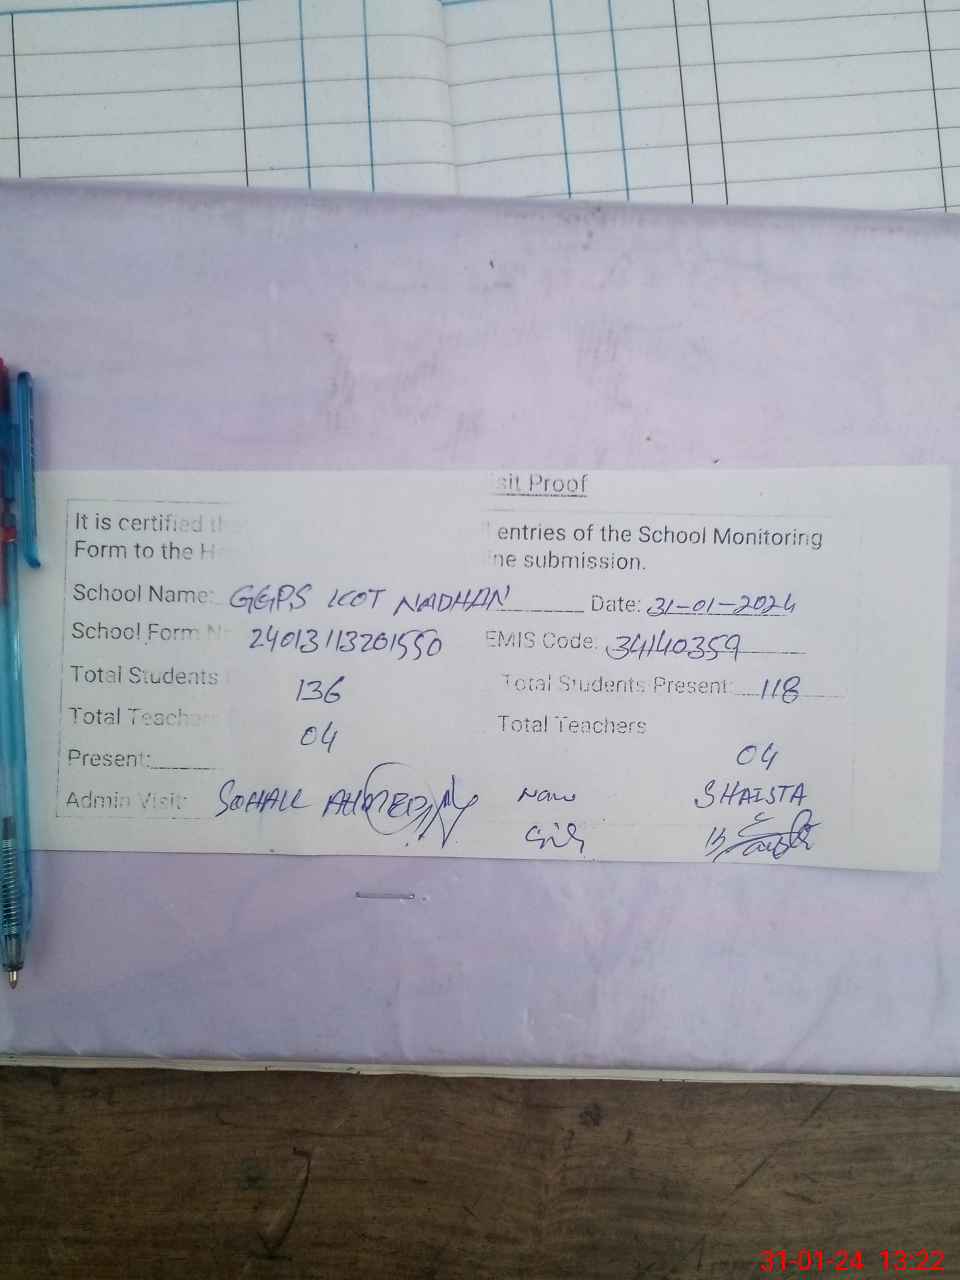 sit Proof
It is certified the entries of the School Monitoring
Form to the H ne submission.
School Name: GGPS KOT NADHAN Date: 31-01-2024
School Form N 24013113201550 EMIS Code: 34140359
Total Students 136 Total Students Present: 118
Total Teachers 04 Total Teachers
Present: 04
Admin Visit: SOHAIL AHMED Name SHAISTA
Sig
31-01-24 13:22